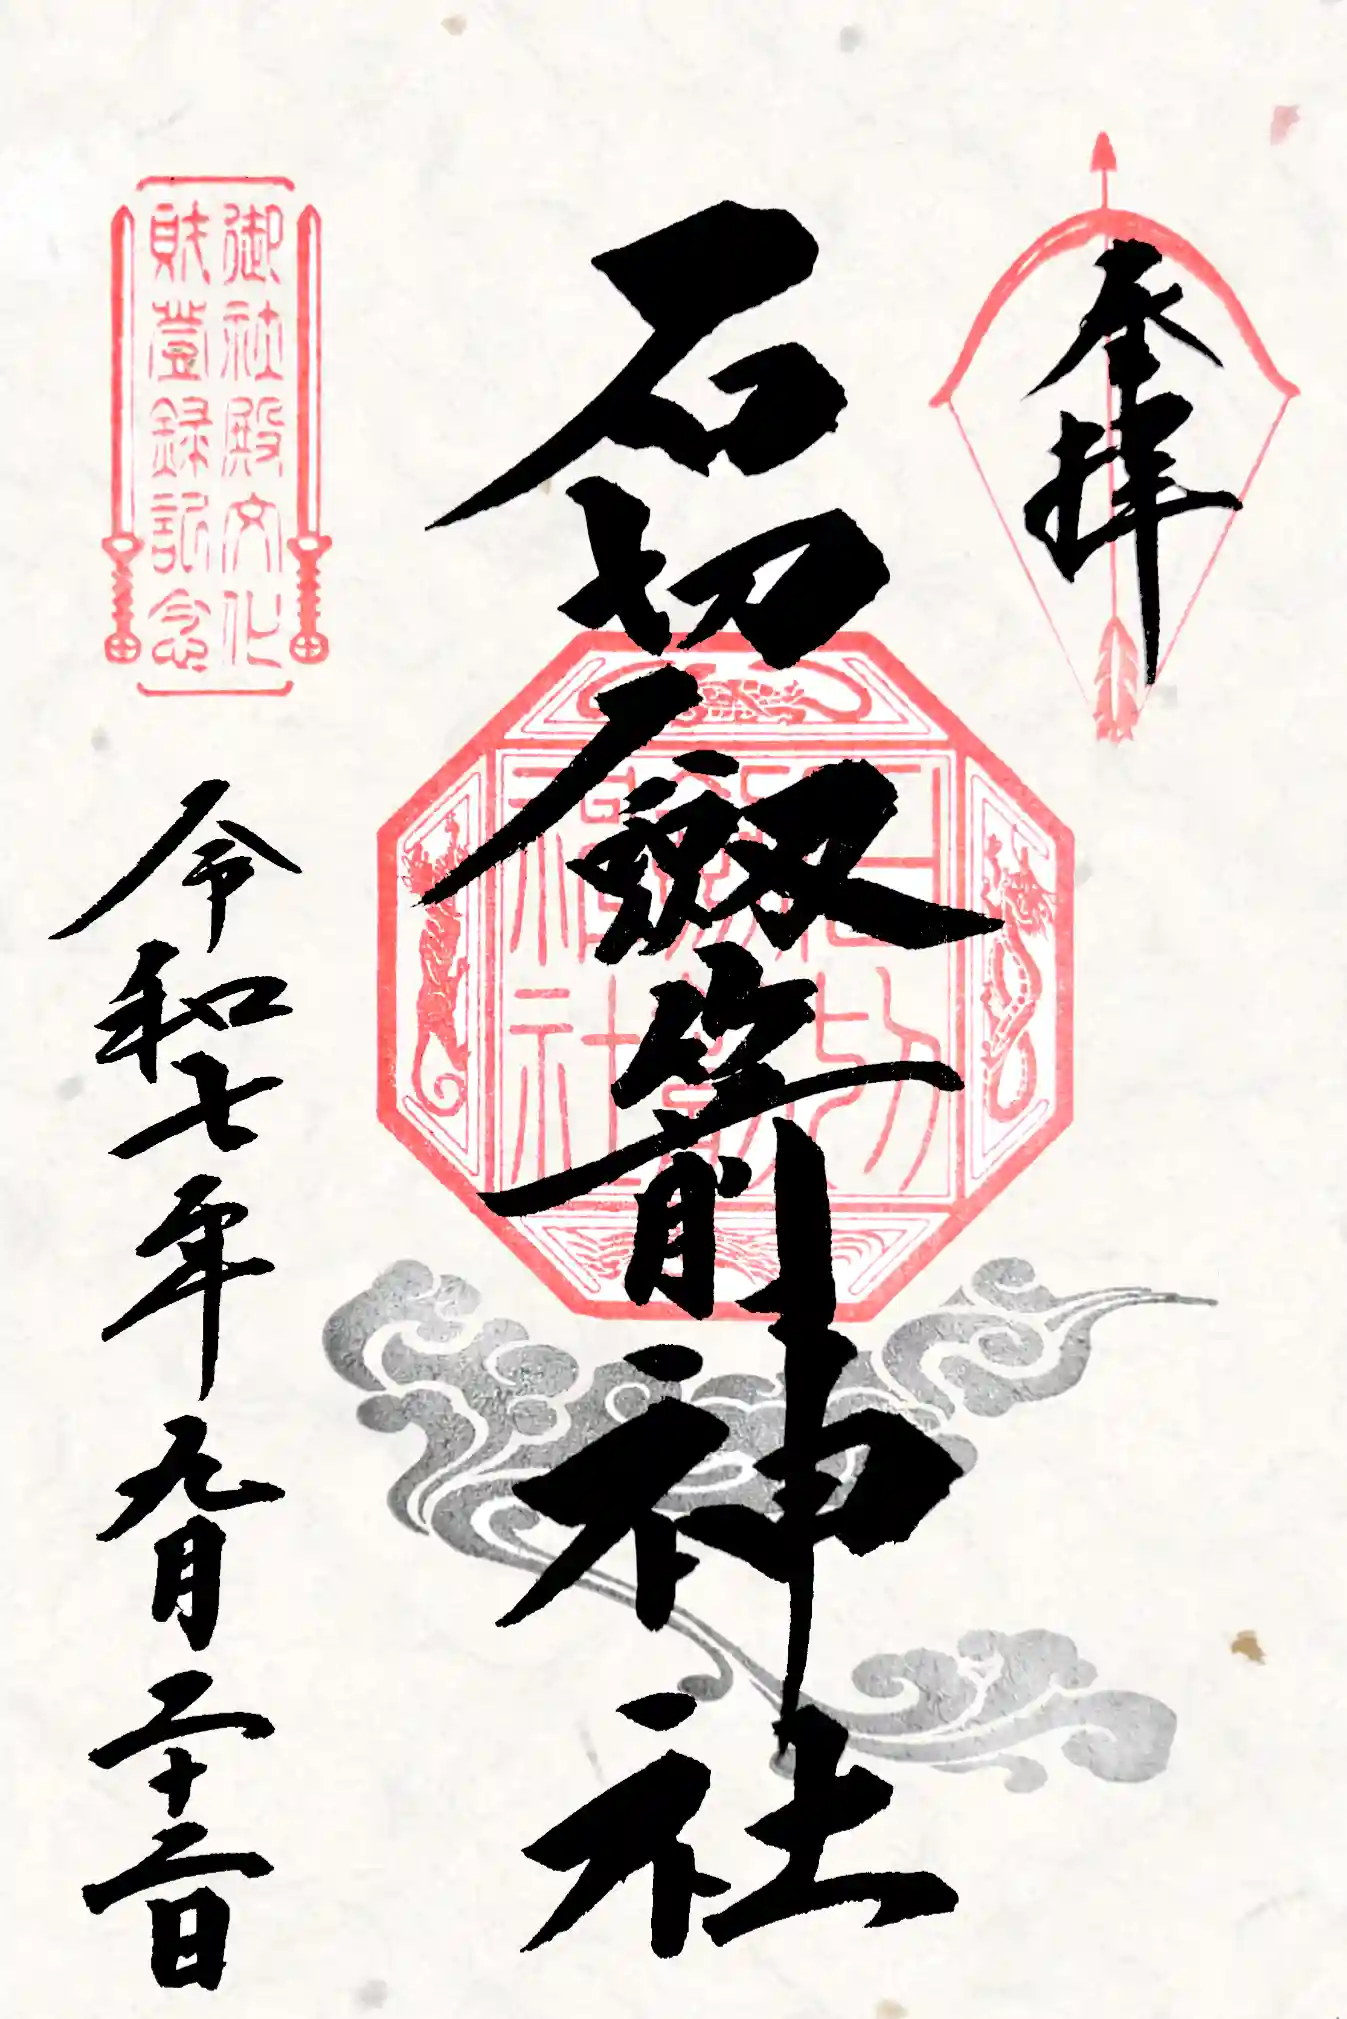 奉拝
石切劔箭神社
石切劔箭神社
御社殿文化
財登録記念
令和七年九月二十二日